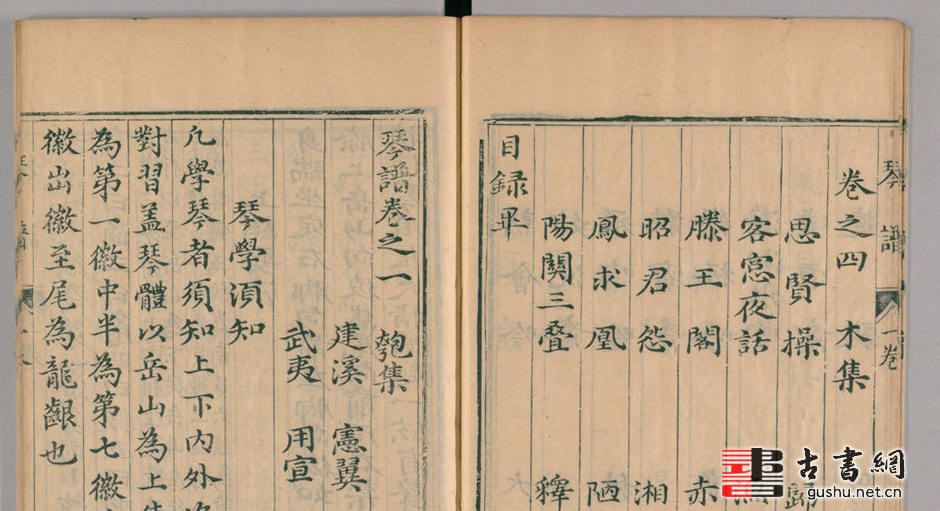 琴譜 一卷
卷之四 木集
思賢操 歸
客窓夜話
滕王閣 赤
昭君怨 湘
鳳求凰 陋
陽關三叠 釋
目録畢
琴譜卷之一 匏集
建溪 憲翼
武夷 用宣
琴學須知
凢學琴者須知上下内外
對習蓋琴體以岳山為上
為第一徽中半為第七徽
徽出徽至尾為龍齦也
古書網
gushu.net.cn